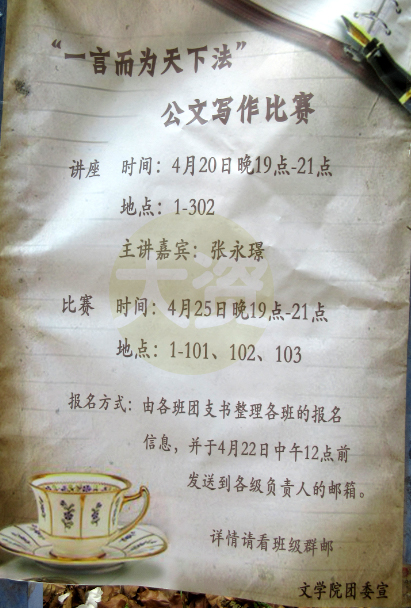 “一言而为天下法”
公文写作比赛
讲座 时间：4月20日晚19点-21点
地点：1-302
主讲嘉宾：张永璟
比赛 时间：4月25日晚19点-21点
地点：1-101、102、103
报名方式：由各班团支书整理各班的报名
信息，并于4月22日中午12点前
发送到各级负责人的邮箱。
详情请看班级群邮
文学院团委宣